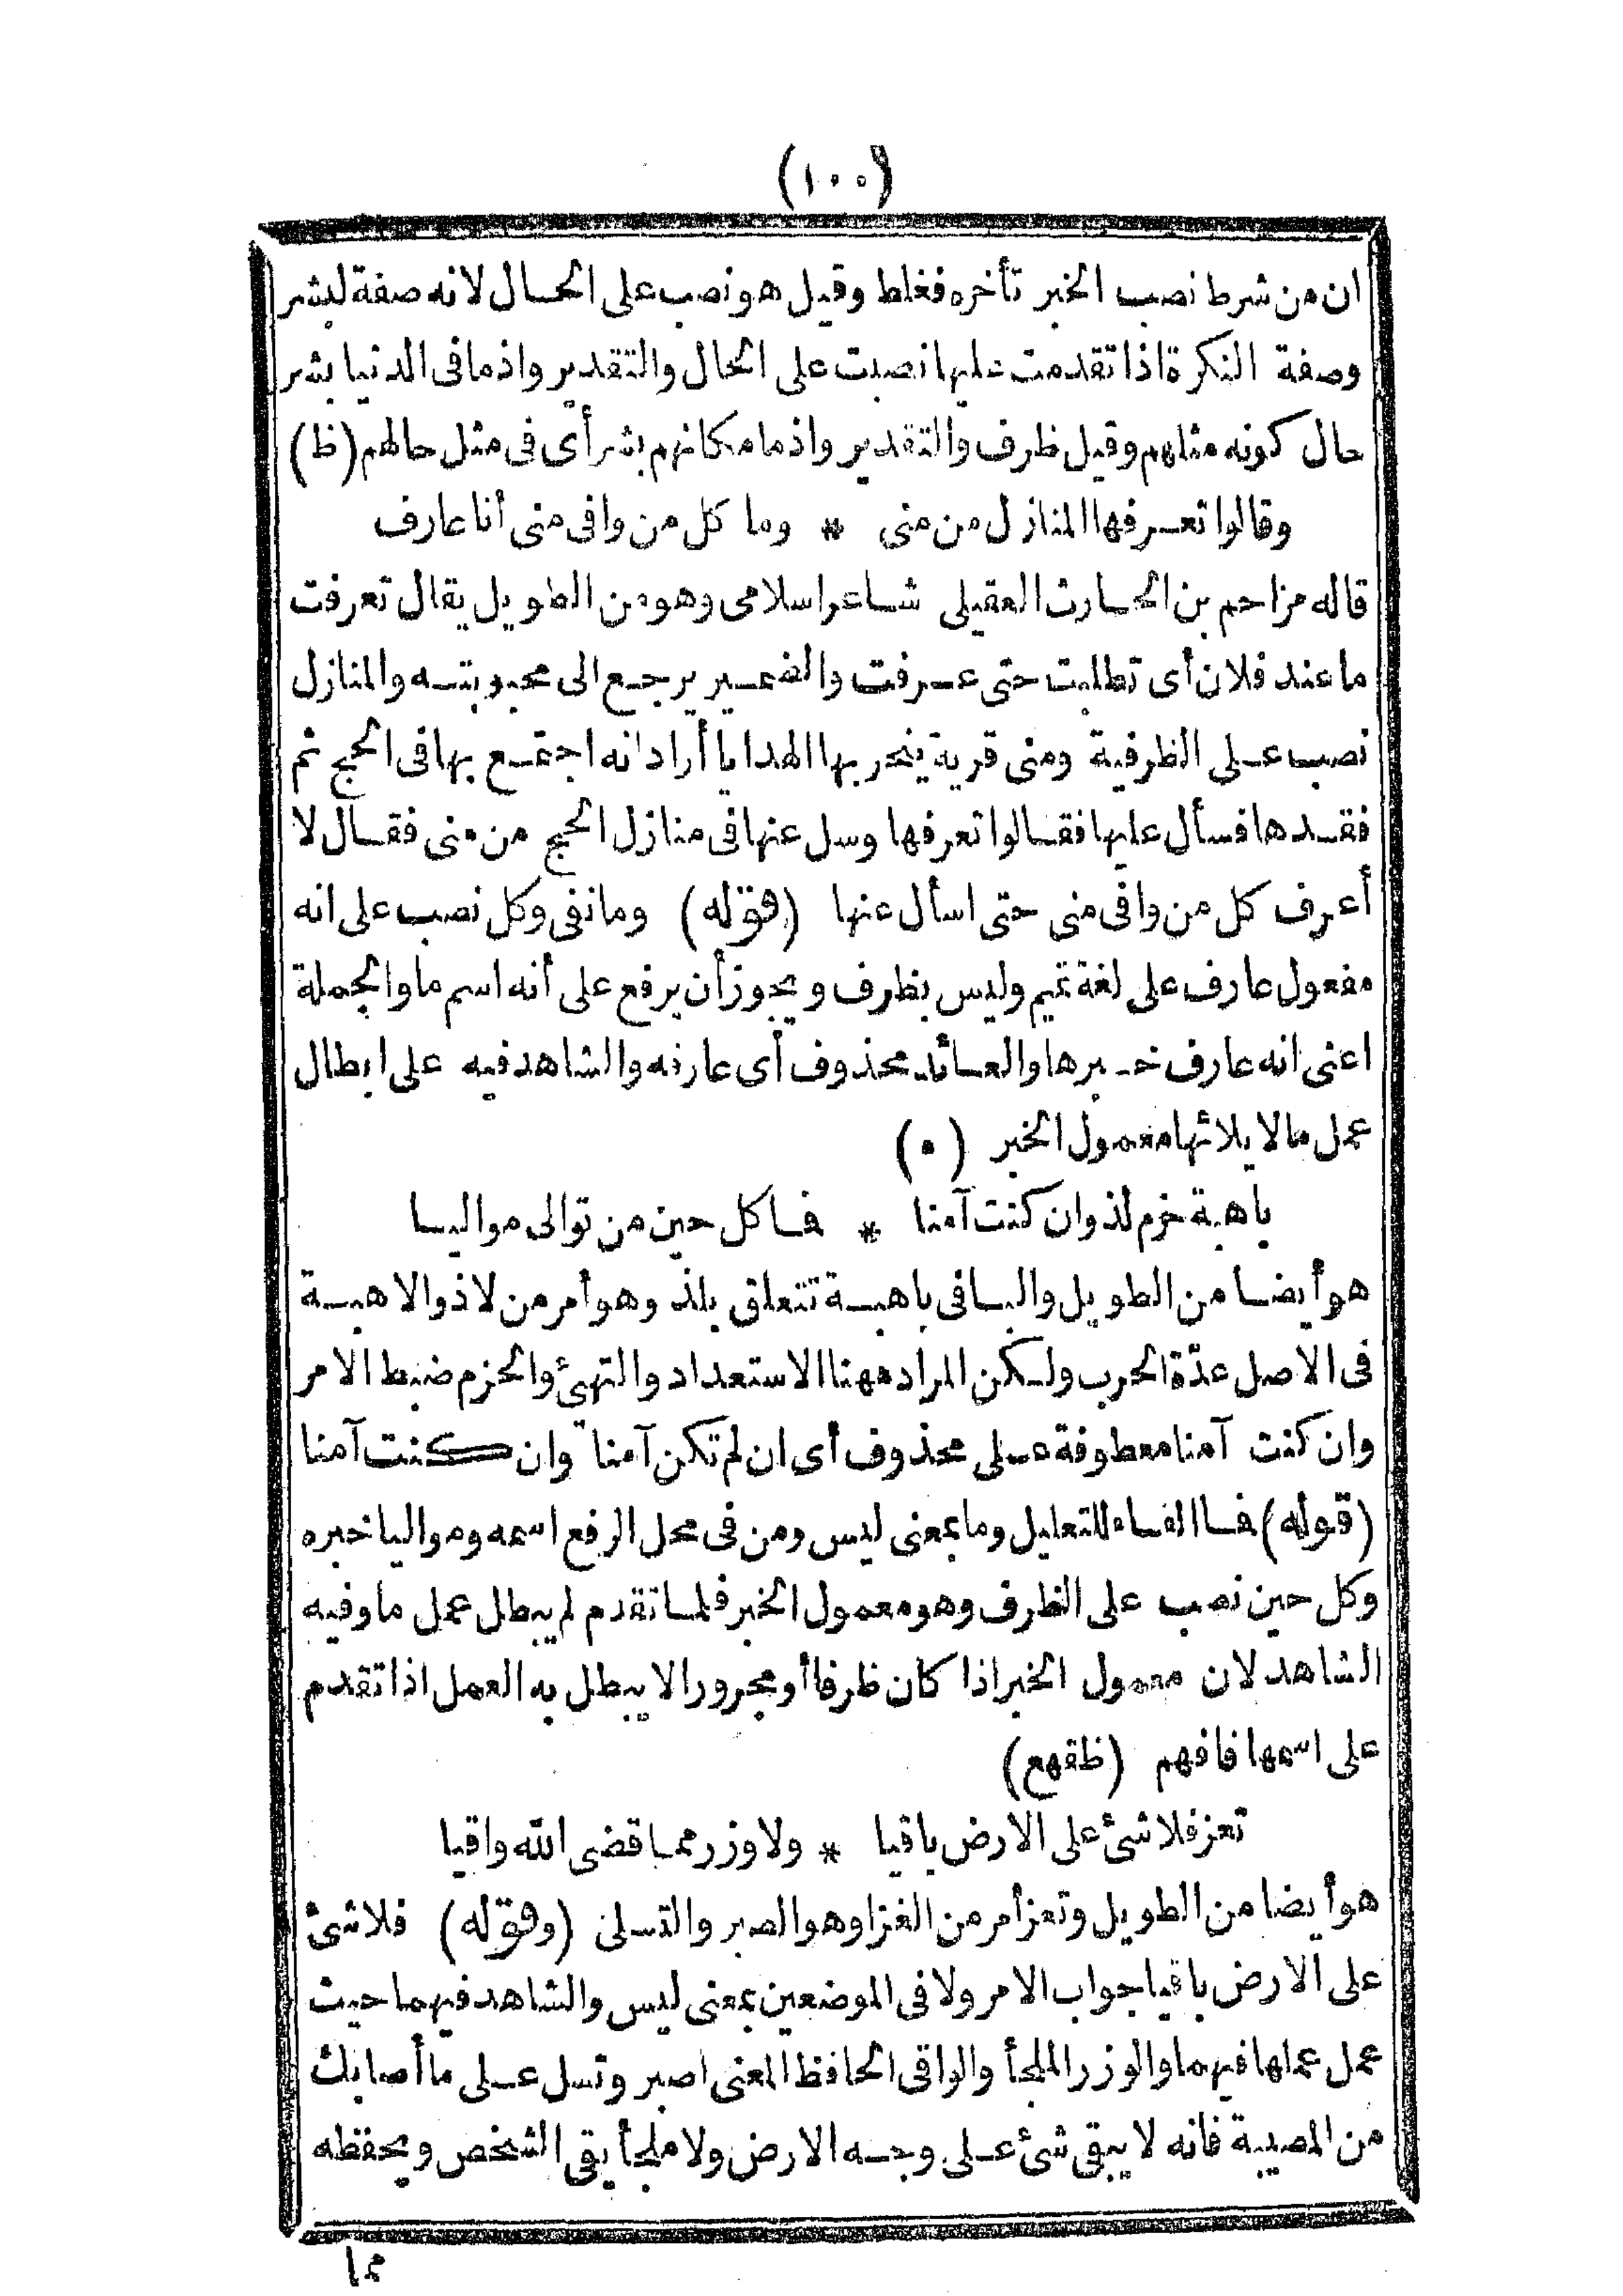 (١٠٠)
ان من شرط نصب الخبر تأخره فغلط وقيل هو نصب على الحال لانه صفة لبشر
وصفة النكرة اذا تقدمت عليها نصبت على الحال والتقدير واذ ما فى الدنيا بشر
حال كونه مثلهم وقيل ظرف والتقدير واذ ما مكانهم بشر أى فى مثل حالهم (ظ)
وقالوا تعرفها المنازل من منى * وما كل من وافى منى أنا عارف
قاله مزاحم بن الحارث العقيلى شاعر اسلامى وهو من الطويل يقال تعرفت
ما عند فلان أى تطلبت حتى عرفت والضمير يرجع الى محبوبته والمنازل
نصب على الظرفية ومنى قرية ينحر بها الهدايا أراد انه اجتمع بها فى الحج ثم
فقدها فسأل عليها فقالوا تعرفها وسل عنها فى منازل الحج من منى فقال لا
أعرف كل من وافى منى حتى اسأل عنها (قوله) وما نفى وكل نصب على انه
مفعول عارف على لغة تميم وليس بظرف ويجوز أن يرفع على أنه اسم ما والجملة
اعنى انه عارف خبرها والعائد محذوف أى عارفه والشاهد فيه على ابطال
عمل ما لايلائها معمول الخبر (ه)
باهبة حزم لذ وان كنت آمنا * فما كل حين من توالى مواليا
هو أيضا من الطويل والبا فى باهبة تتعلق بلذ وهو أمر من لاذ والاهبة
فى الاصل عدّة الحرب ولكن المراد ههنا الاستعداد والتهيئ والحزم ضبط الامر
وان كنت آمنا معطوفة على محذوف أى ان لم تكن آمنا وان كنت آمنا
(قوله) فما الفاء للتعليل وما بمعنى ليس ومن فى محل الرفع اسمه ومواليا خبره
وكل حين نصب على الظرف وهو معمول الخبر فلما تقدم لم يبطل عمل ما وفيه
الشاهد لان معمول الخبر اذا كان ظرفا أو مجرورا لا يبطل به العمل اذا تقدم
على اسمها فافهم (ظقهع)
تعز فلا شئ على الارض باقيا * ولا وزر مما قضى الله واقيا
هو أيضا من الطويل وتعز أمر من الغزا وهو الصبر والتسلى (وقوله) فلا شئ
على الارض باقيا جواب الامر ولا فى الموضعين بمعنى ليس والشاهد فيهما حيث
عمل عملها فيهما والوزر الملجأ والواقى الحافظ المعنى اصبر وتسل على ما أصابك
من المصيبة فانه لا يبقى شئ على وجه الارض ولا ملجأ يقى الشخص ويحفظه
مما